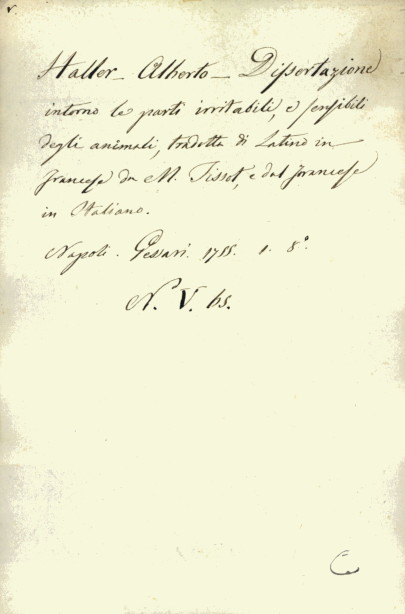 Haller – Alberto – Dissertazione
intorno le parti irritabili, e sensibili
degli animali, tradotta di Latino in
francese da M. Tissot, e dal francese
in Italiano.
Napoli. Gessari. 1755. 1. 8°.
N. V. 65.